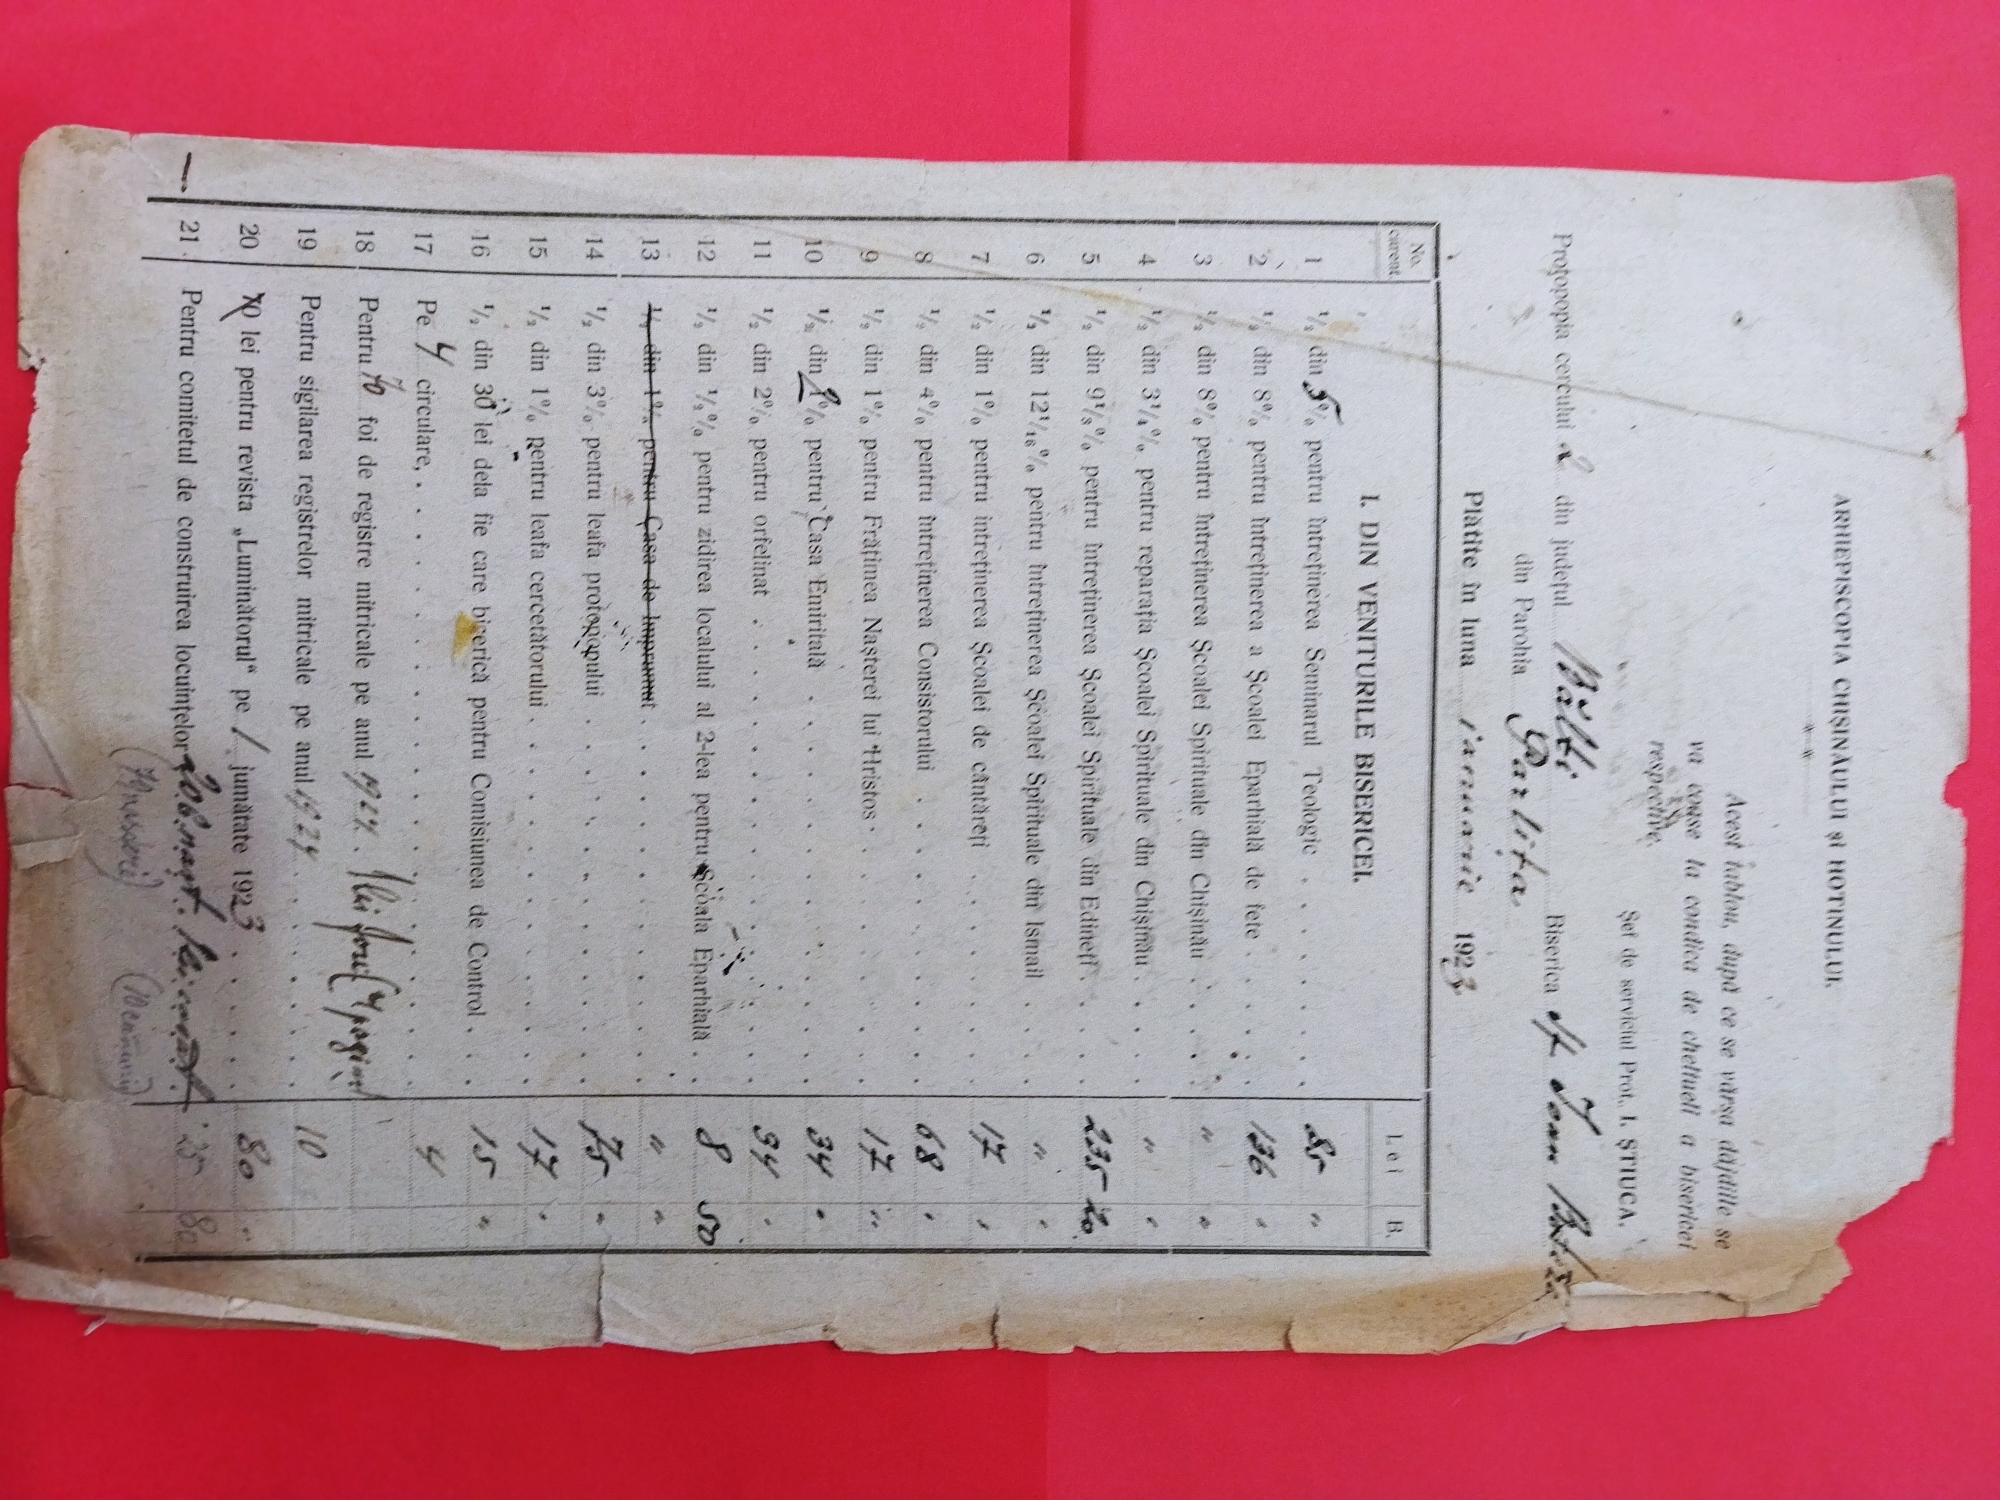 ARHIEPISCOPIA CHIȘINĂULUI și HOTINULUI.
Acest tablou, după ce se vărsa dăjdiile se
va coase la condica de cheltueli a bisericei
respective.
Șef de serviciul Prot. I. ȘTIUCA.
Protopopia cercului 2 din județul Bălți Biserica Sf Ioan
din Parohia Parlița
Plătite în luna ianuarie 1923
No. curent. I. DIN VENITURILE BISERICEI. Lei B.
1 ½ din 5% pentru întreținerea Seminarul Teologic . . . . 85 "
2 ½ din 8% pentru întreținerea a Școalei Eparhială de fete . . . 136 "
3 ½ din 8% pentru întreținerea Școalei Spirituale din Chișinău . . . " "
4 ½ din 3¼% pentru reparația Școalei Spirituale din Chișinău . . . " "
5 ½ din 9⅕% pentru întreținerea Școalei Spirituale din Edineți . . . 235 20
6 ½ din 12¹/₁₆% pentru întreținerea Școalei Spirituale din Ismail . . . " "
7 ½ din 1% pentru întreținerea Școalei de cântăreți . . . . 17 "
8 ½ din 4% pentru întreținerea Consistorului . . . . . 68 "
9 ½ din 1% pentru Frățimea Nașterei lui Hristos . . . . 17 "
10 ½ din 2% pentru Casa Emiritală . . . . . . 34 "
11 ½ din 2% pentru orfelinat . . . . . . . 34 "
12 ½ din ½% pentru zidirea localului al 2-lea pentru Școala Eparhială . . 8 50
13 ½ din 1% pentru Casa de Imprumut . . . . . . " "
14 ½ din 3% pentru leafa protopopului . . . . . . 75 "
15 ½ din 1% pentru leafa cercetătorului . . . . . . 17 "
16 ½ din 30 lei dela fie care biserică pentru Comisiunea de Control . . . 15 "
17 Pe 4 circulare, . . . . . . . . . 4
18 Pentru 70 foi de registre mitricale pe anul 1924.
19 Pentru sigilarea registrelor mitricale pe anul 1924 . . . . 10
20 lei pentru revista „Luminătorul" pe / jumătate 1923 . . . . 80 "
21 Pentru comitetul de construirea locuințelor 25 80